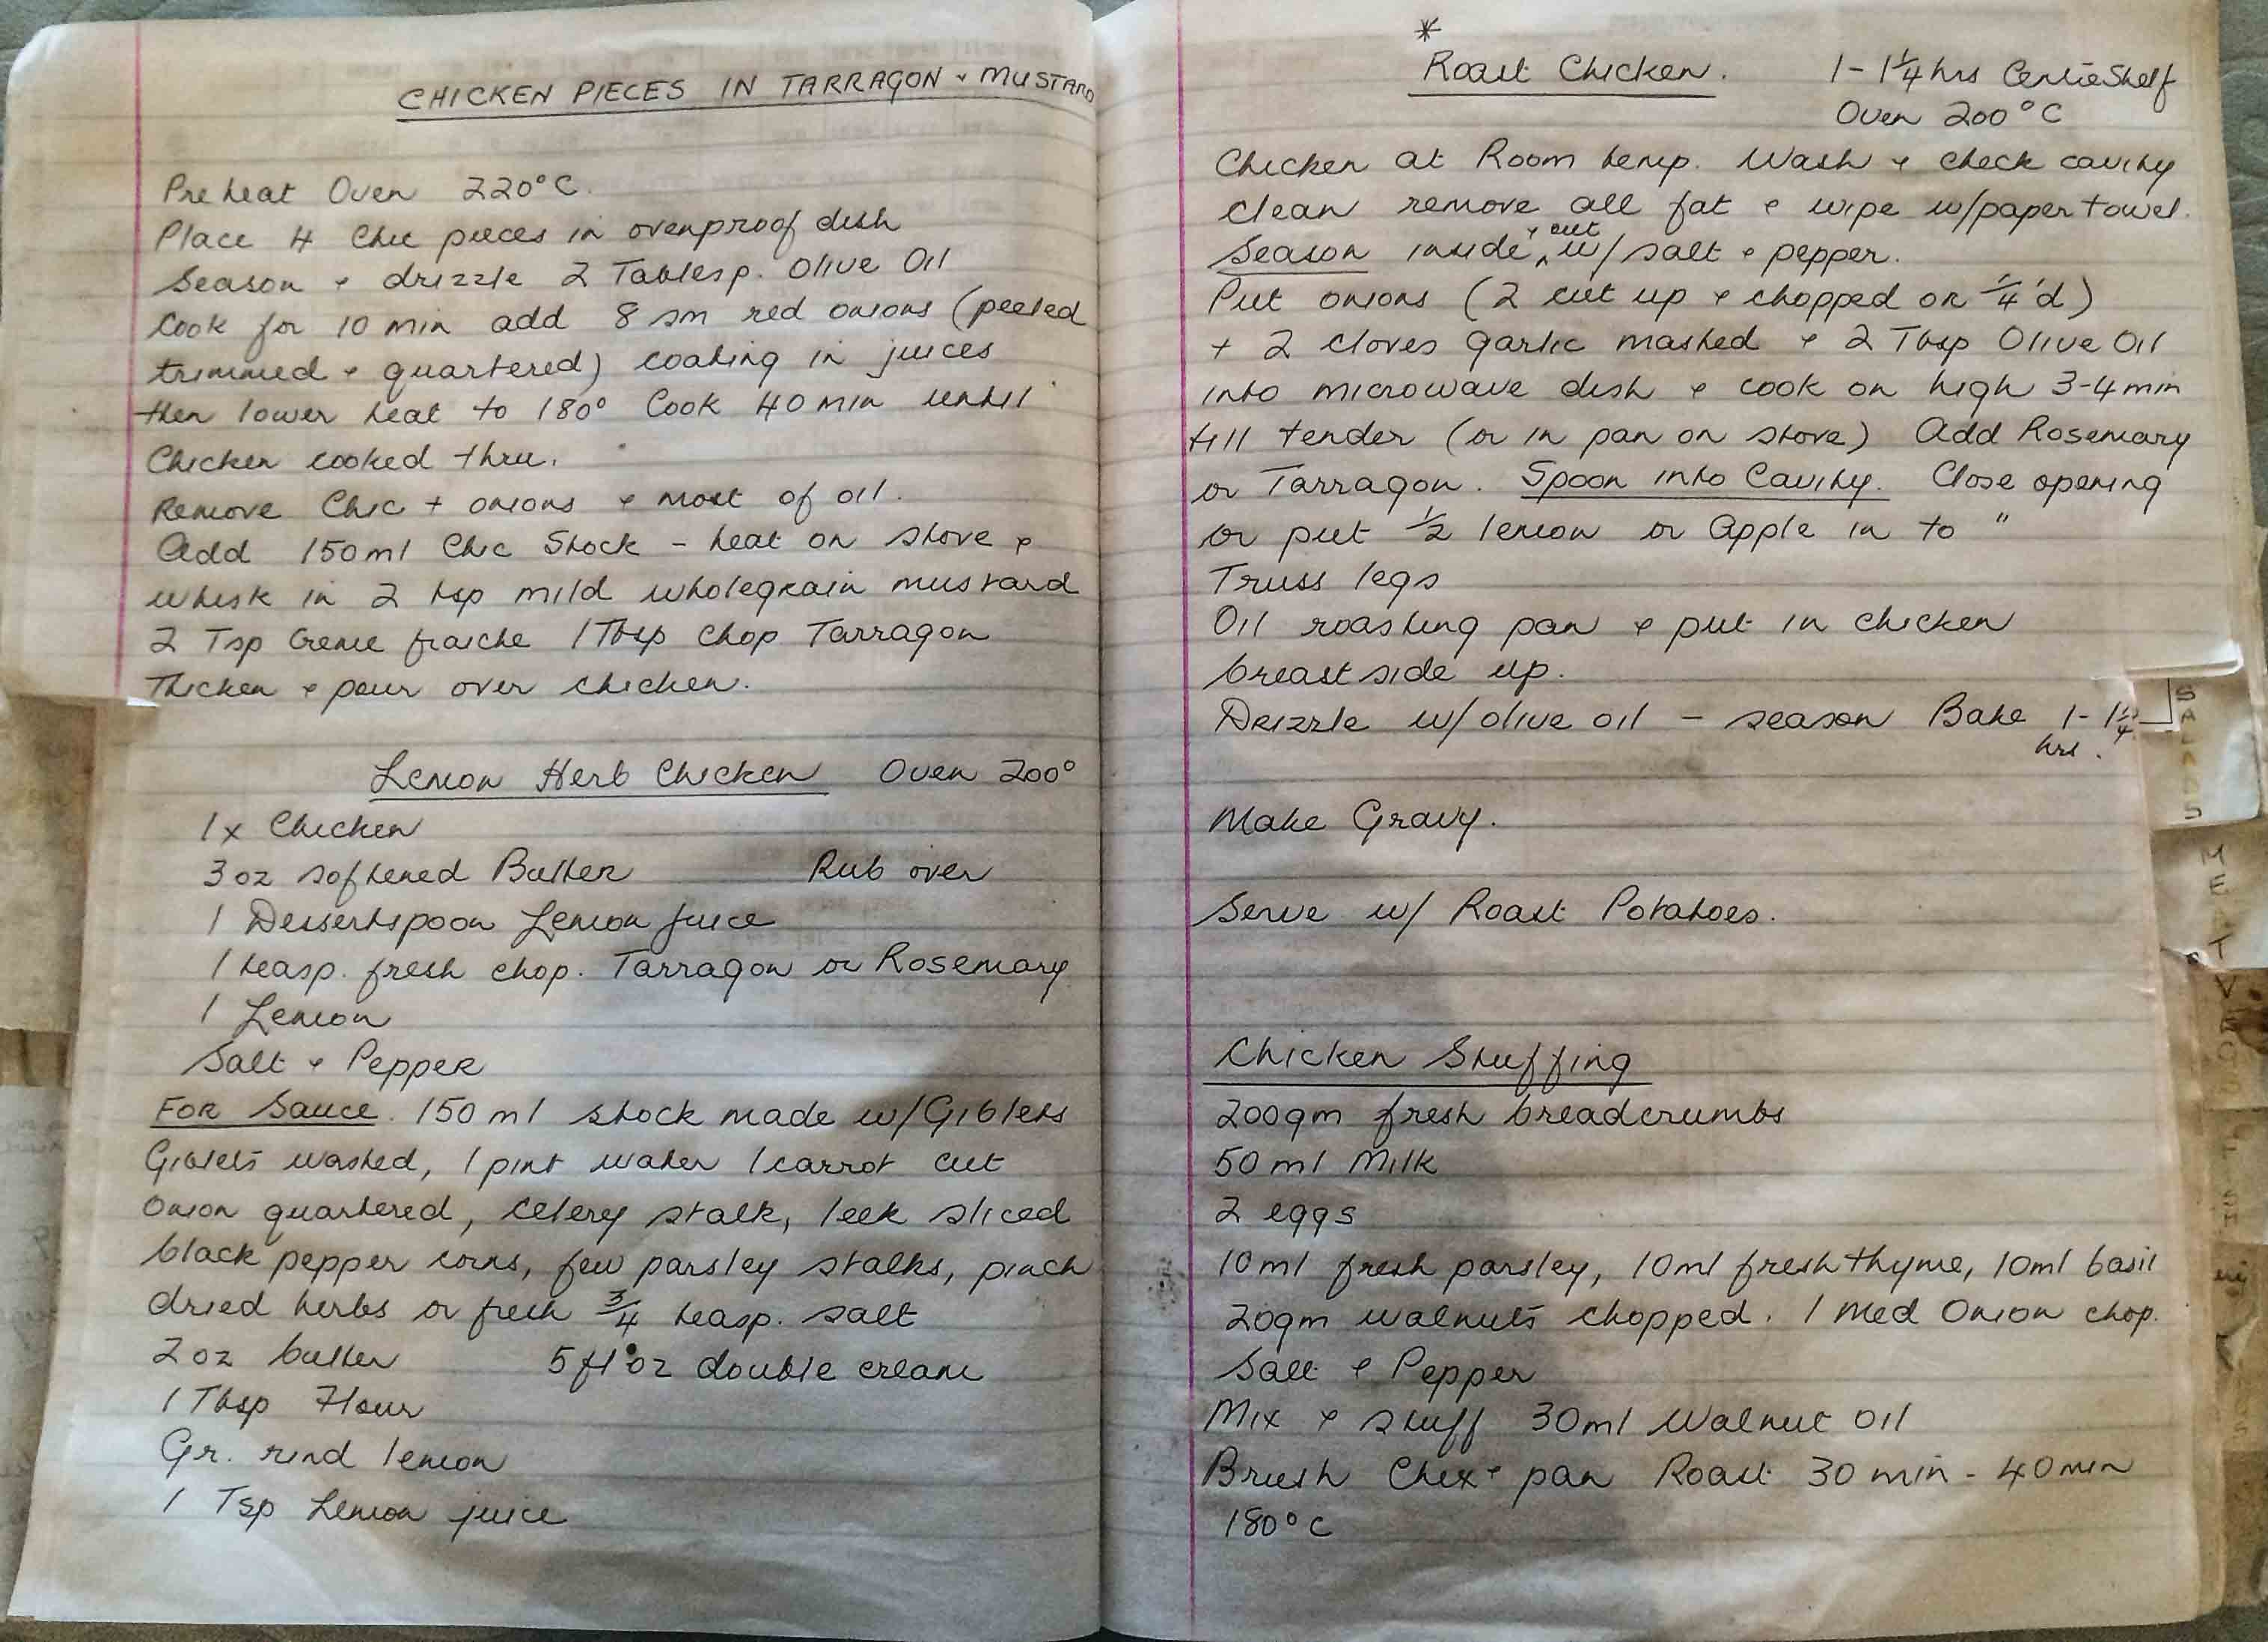 CHICKEN PIECES IN TARRAGON & MUSTARD
Preheat Oven 220°C.
Place 4 Chic pieces in ovenproof dish
Season & drizzle 2 Tablesp. Olive Oil
Cook for 10 min add 8 sm red onions (peeled
trimmed & quartered) coating in juices
then lower heat to 180° Cook 40 min until
Chicken cooked thru.
Remove Chic + onions & most of oil.
Add 150ml Chic Stock - heat on stove &
whisk in 2 tsp mild wholegrain mustard
2 Tsp Creme fraiche 1 Tbsp chop Tarragon
Thicken & pour over chicken.
Lemon Herb Chicken Oven 200°
1x Chicken
3 oz softened Butter Rub over
1 Dessertspoon Lemon juice
1 teasp. fresh chop. Tarragon or Rosemary
1 Lemon
Salt & Pepper
For Sauce. 150 ml stock made w/Giblets
Giblets washed, 1 pint water 1 carrot cut
Onion quartered, celery stalk, leek sliced
black pepper corns, few parsley stalks, pinch
dried herbs or fresh 3/4 teasp. salt
2 oz butter 5 fl oz double cream
1 Tbsp Flour
Gr. rind lemon
1 Tsp Lemon juice
*
Roast Chicken. 1 - 1 1/4 hrs Centre Shelf
Oven 200°C
Chicken at Room temp. Wash & check cavity
clean remove all fat & wipe w/paper towel.
Season inside & out w/ salt & pepper.
Put onions (2 cut up & chopped or 1/4'd)
+ 2 cloves garlic mashed & 2 Tbsp Olive Oil
into microwave dish & cook on high 3-4 min
till tender (or in pan on stove) Add Rosemary
or Tarragon. Spoon into Cavity. Close opening
or put 1/2 lemon or Apple in to "
Truss legs
Oil roasting pan & put in chicken
breast side up.
Drizzle w/olive oil - season Bake 1 - 1 1/4
hrs.
Make Gravy.
Serve w/ Roast Potatoes.
Chicken Stuffing
200gm fresh breadcrumbs
50 ml Milk
2 eggs
10ml fresh parsley, 10ml fresh thyme, 10ml basil
20gm walnuts chopped. 1 Med Onion chop.
Salt & Pepper
Mix & stuff 30ml Walnut Oil
Brush Chex & pan Roast 30 min - 40 min
180°C
SALADS